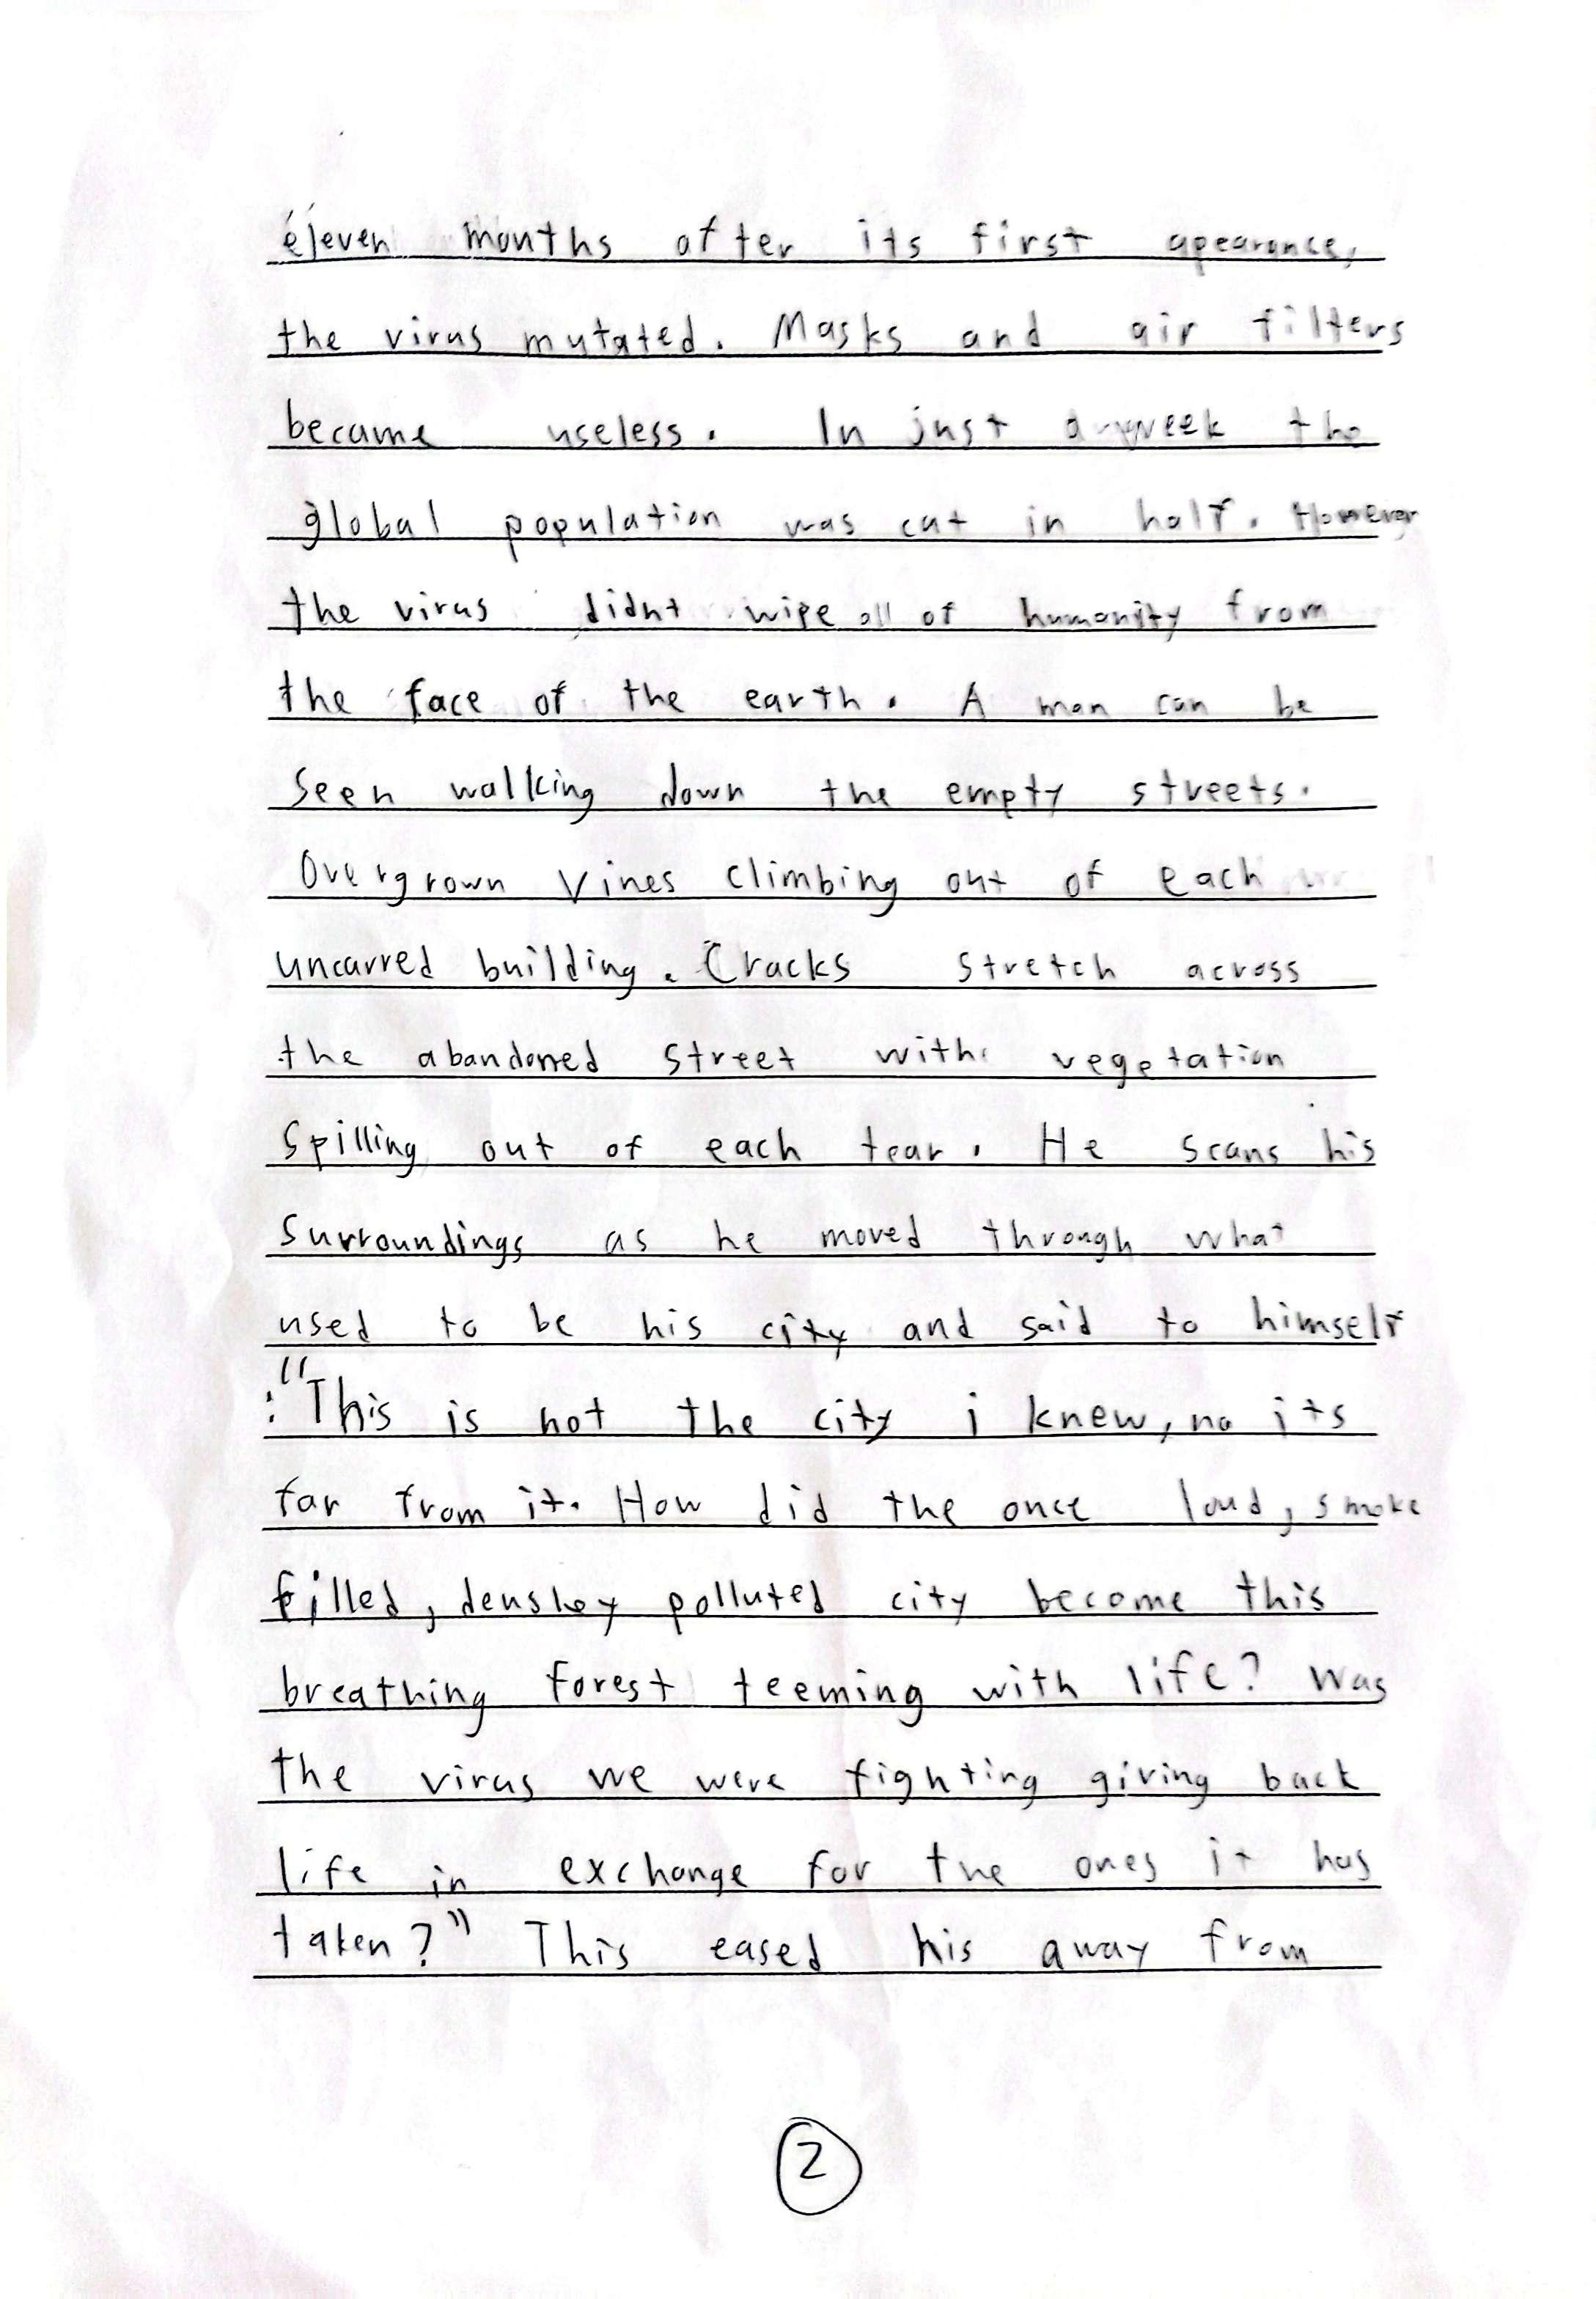 eleven months after its first apearance,
the virus mutated. Masks and air filters
became useless. In just a week the
global population was cut in half. However
the virus didnt wipe all of humanity from
the face of the earth. A man can be
seen walking down the empty streets.
Overgrown vines climbing out of each
uncarred building. Cracks stretch across
the abandoned street with vegetation
spilling out of each tear. He scans his
surroundings as he moved through what
used to be his city and said to himself
:"This is not the city i knew, no its
far from it. How did the once loud, smoke
filled, densley polluted city become this
breathing forest teeming with life? Was
the virus we were fighting giving back
life in exchange for the ones it has
taken?" This eased his away from
2